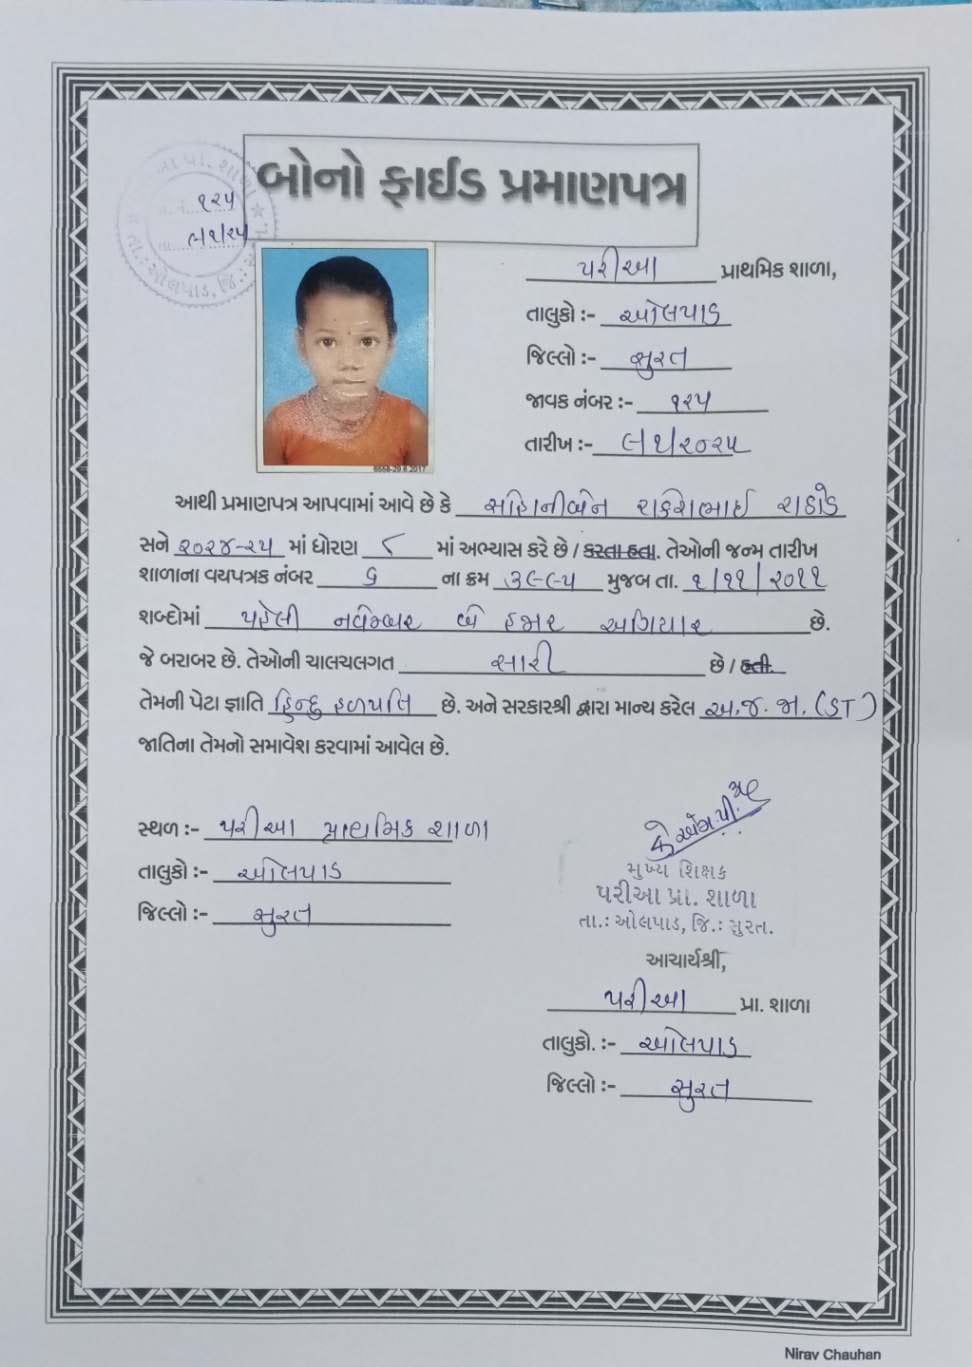 બોનો ફાઈડ પ્રમાણપત્ર
પ્રા. શાળા
૧૨૫
૯/૧/૨૫
પરીઆ પ્રાથમિક શાળા,
તાલુકો :- ઓલપાડ
જિલ્લો :- સુરત
જાવક નંબર :- ૧૨૫
તારીખ :- ૯/૧/૨૦૨૫
આથી પ્રમાણપત્ર આપવામાં આવે છે કે રાકેશભાઈ રાઠોડ
સને ૨૦૨૪-૨૫ માં ધોરણ ૮ માં અભ્યાસ કરે છે / કરતા હતા. તેઓની જન્મ તારીખ
શાળાના વયપત્રક નંબર ૬ ના ક્રમ ૩૯૯૫ મુજબ તા. ૧/૧૧/૨૦૧૧
શબ્દોમાં પહેલી નવેમ્બર બે હજાર અગિયાર છે.
જે બરાબર છે. તેઓની ચાલચલગત સારી છે / હતી.
તેમની પેટા જ્ઞાતિ હિન્દુ હળપતિ છે. અને સરકારશ્રી દ્વારા માન્ય કરેલ અ.જ.જા. (ST)
જાતિના તેમનો સમાવેશ કરવામાં આવેલ છે.
સ્થળ :- પરીઆ પ્રાથમિક શાળા
તાલુકો :- ઓલપાડ
જિલ્લો :- સુરત
મુખ્ય શિક્ષક
પરીઆ પ્રા. શાળા
તા.: ઓલપાડ, જિ.: સુરત.
આચાર્યશ્રી,
પરીઆ પ્રા. શાળા
તાલુકો. :- ઓલપાડ
જિલ્લો :- સુરત
Nirav Chauhan